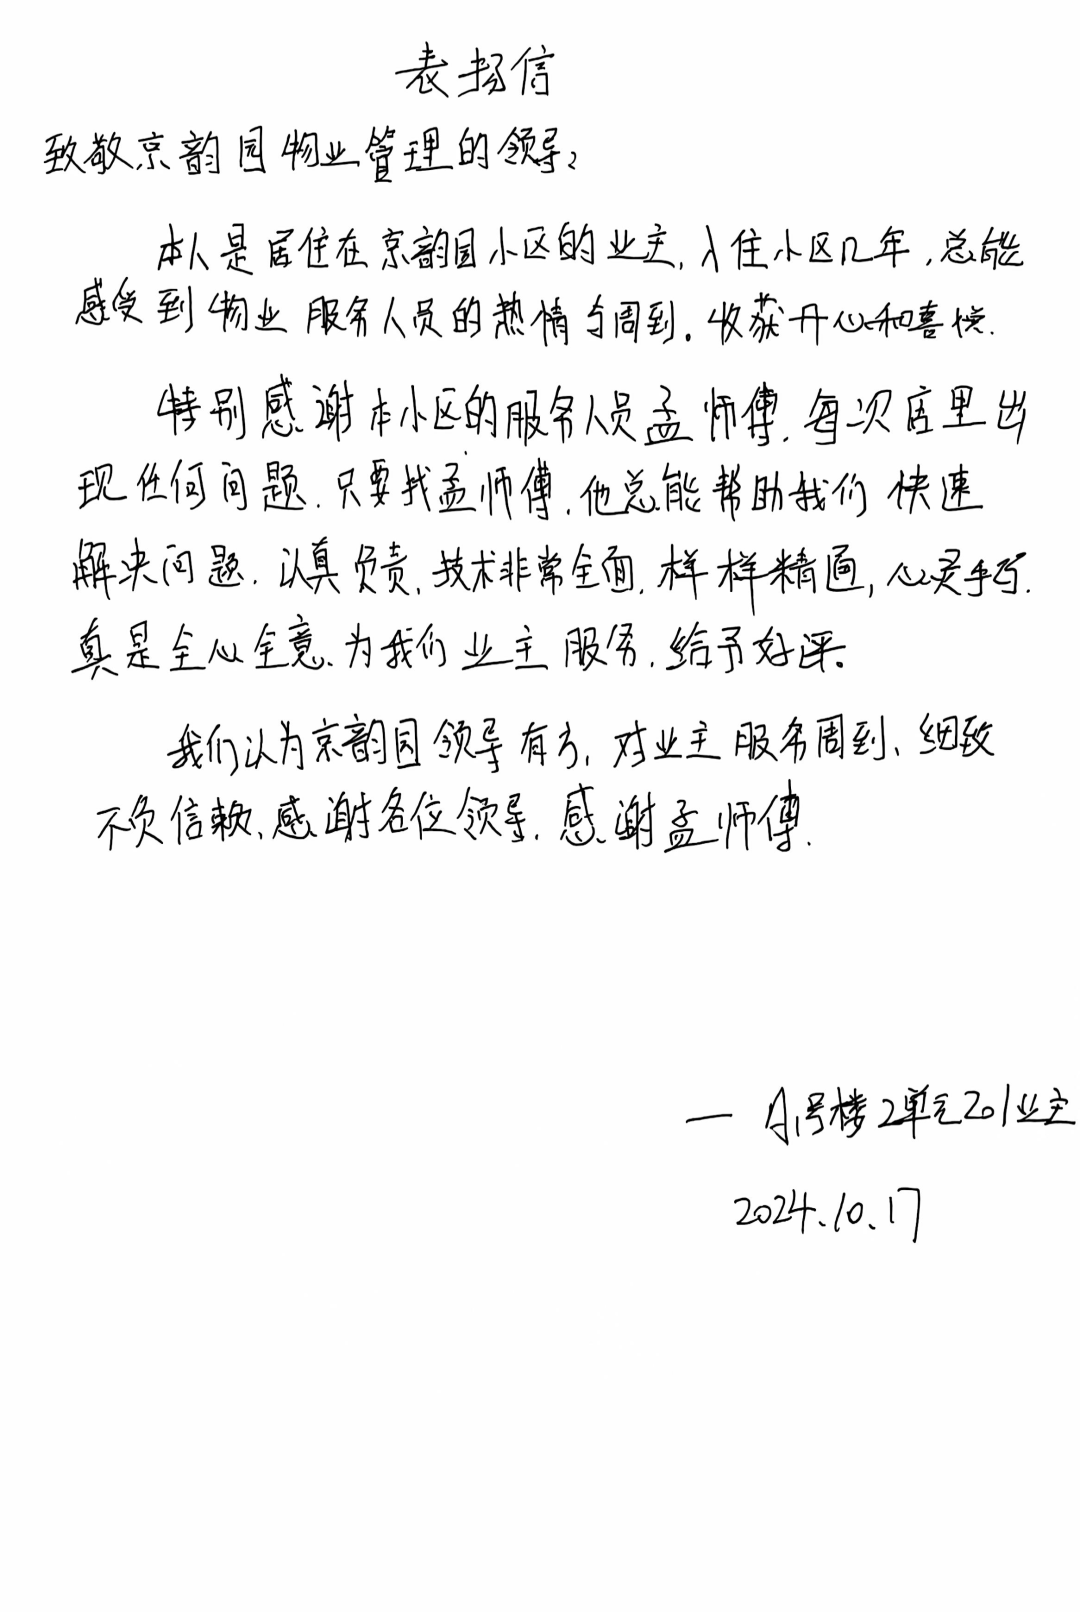 表扬信
致敬京韵园物业管理的领导：
本人是居住在京韵园小区的业主，入住小区几年，总能
感受到物业服务人员的热情与周到。收获开心和喜悦.
特别感谢本小区的服务人员孟师傅，每次店里出
现任何问题，只要找孟师傅，他总能帮助我们快速
解决问题，认真负责，技术非常全面，样样精通，心灵手巧.
真是全心全意、为我们业主服务，给予好评。
我们认为京韵园领导有方，对业主服务周到、细致
不负信赖、感谢各位领导，感谢孟师傅.
— A1号楼2单元201业主
2024.10.17